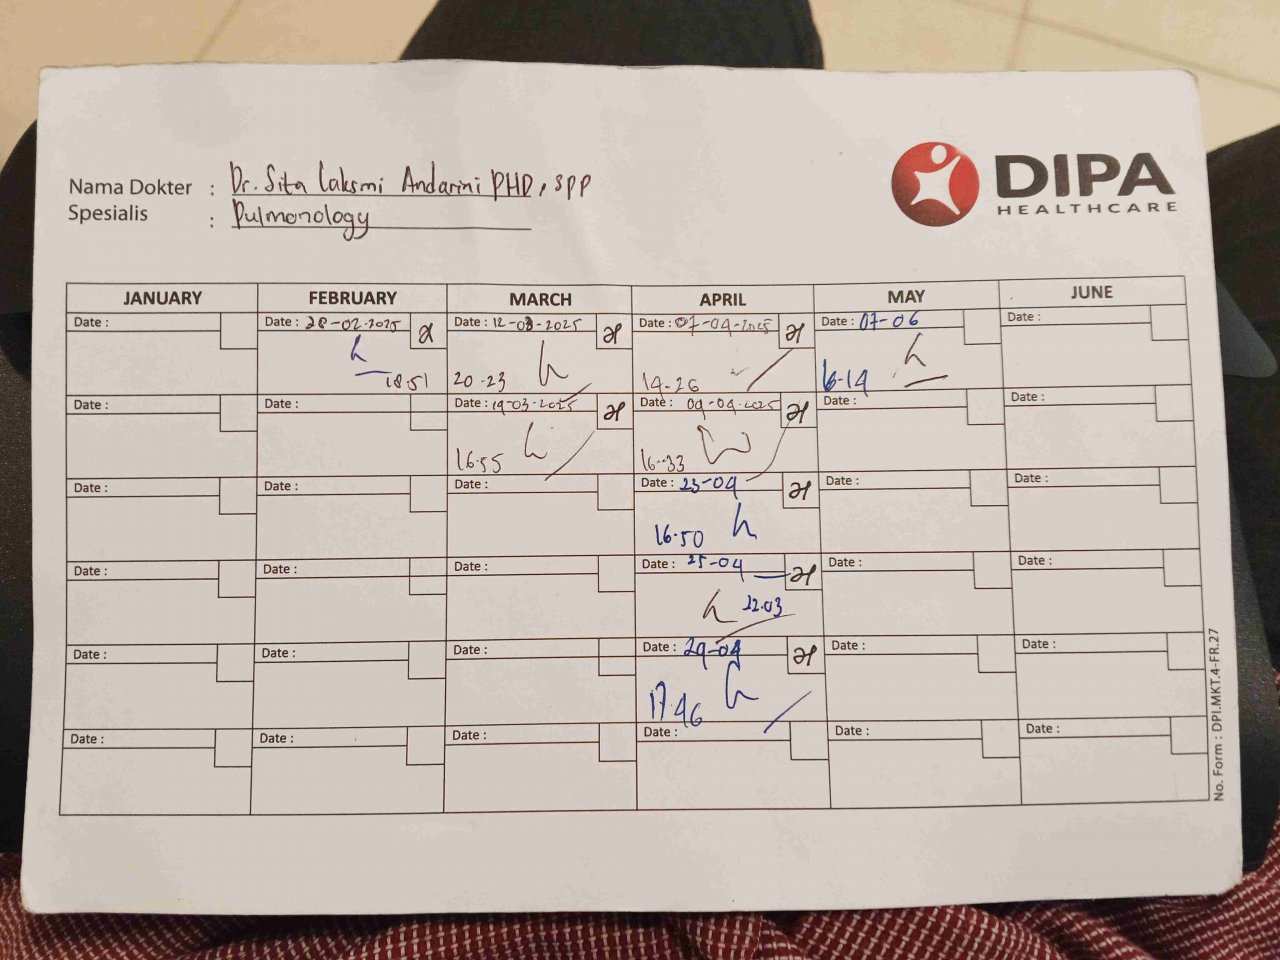 Nama Dokter : Dr. Sita Laksmi Andarini PHD, SPP
Spesialis : Pulmonology
DIPA
HEALTHCARE
JANUARY FEBRUARY MARCH APRIL MAY JUNE
Date : Date : 28-02-2025 Date : 12-03-2025 Date : 07-04-2025 Date : 07-06 Date :
18.51 20.23 14-26 16-14
Date : Date : Date : 19-03-2025 Date : 09-04-2025 Date : Date :
16.55 16-33
Date : Date : Date : Date : 23-04 Date : Date :
16.50
Date : Date : Date : Date : 25-04 Date : Date :
22.03
Date : Date : Date : Date : 29-04 Date : Date :
17.46
Date : Date : Date : Date : Date : Date :
No. Form : DPI.MKT.4-FR.27